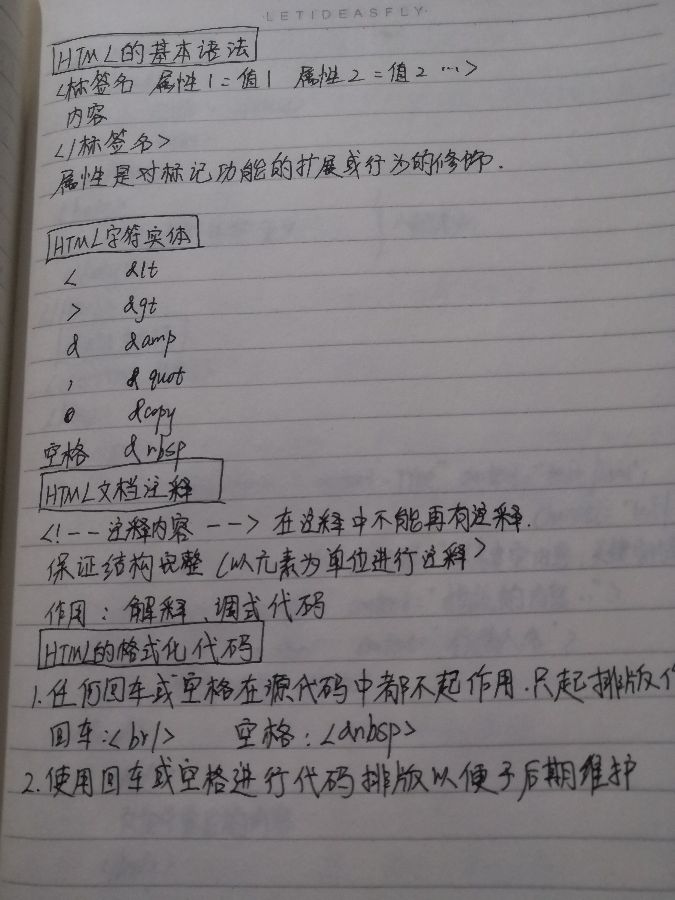 LETIDEASFLY.
HTML的基本语法
<标签名 属性1=值1 属性2=值2 …>
内容
</标签名>
属性是对标记功能的扩展或行为的修饰.
HTML字符实体
< &lt
> &gt
& &amp
, &quot
&copy
空格 &nbsp
HTML文档注释
<!--注释内容 --> 在注释中不能再有注释.
保证结构完整(以元素为单位进行注释>
作用: 解释、调式代码
HTML的格式化代码
1.任何回车或空格在源代码中都不起作用.只起排版
回车:<br/> 空格:<&nbsp>
2.使用回车或空格进行代码排版以便于后期维护